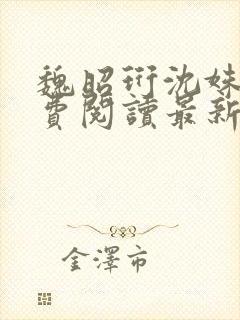 魏昭珩沈姝
費閱讀最新
金澤市